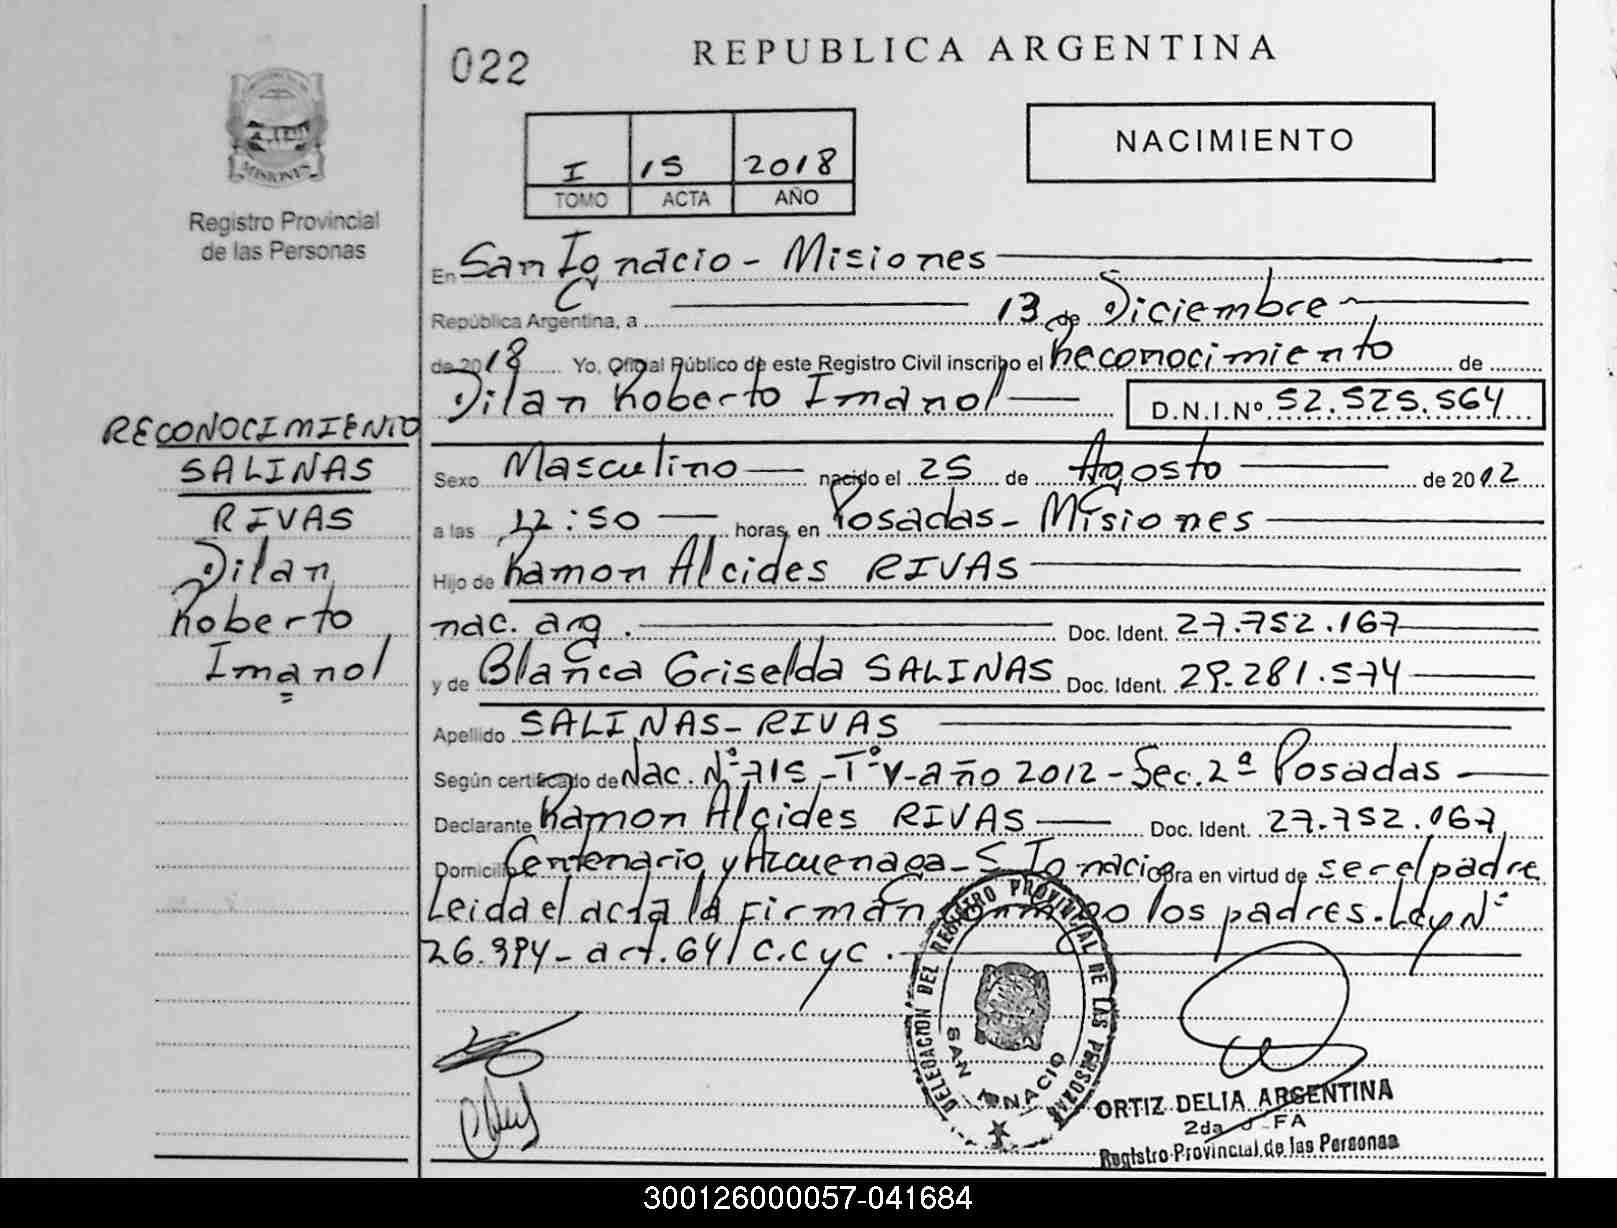 022
REPUBLICA ARGENTINA
NACIMIENTO
I 15 2018
TOMO ACTA AÑO
MISIONES
Registro Provincial
de las Personas
En San Ignacio - Misiones
República Argentina, a 13 de Diciembre
de 2018 Yo, Oficial Público de este Registro Civil inscribo el Reconocimiento de
Dilan Roberto Imanol D.N.I.Nº 52.525.564
RECONOCIMIENTO
SALINAS
RIVAS
Dilan
Roberto
Imanol
Sexo Masculino nacido el 25 de Agosto de 2012
a las 12:50 horas, en Posadas - Misiones
Hijo de Ramon Alcides RIVAS
nac. arg. Doc. Ident. 27.752.167
y de Blanca Griselda SALINAS Doc. Ident. 29.281.574
Apellido SALINAS - RIVAS
Según certificado de Nac. Nº 715 - Tº V - año 2012 - Sec. 2ª Posadas
Declarante Ramon Alcides RIVAS Doc. Ident. 27.752.067
Domicilio Centenario y Azcuenaga - S. Ignacio Obra en virtud de ser el padre
Leida el acta la firman los padres. Ley Nº
26.994 - art. 64 / C.C y C.
DELEGACION DEL REGISTRO PROVINCIAL DE LAS PERSONAS
SAN IGNACIO
ORTIZ DELIA ARGENTINA
2da J-FA
Registro Provincial de las Personas
300126000057-041684